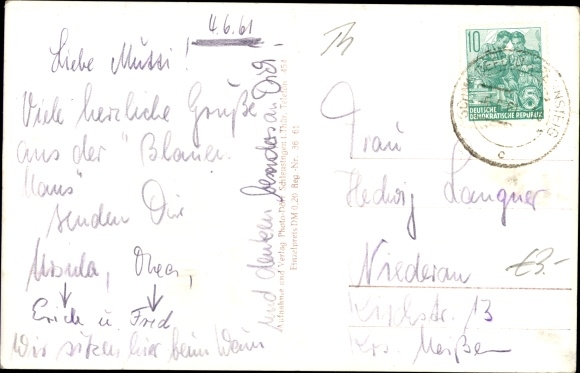 4.6.61
Liebe Mutti!
Viele herzliche Grüße
aus der "Blauen
Maus"
senden Dir
Ursula,
Erich u. Fred
Wir sitzen hier beim Wein
und denken besonders an Dich.
Aufnahme und Verlag Photo-Dörr, Schleusingen i. Thür., Telefon 454
Einzelpreis DM 0.20 Reg.-Nr. 36 61
10
DEUTSCHE
DEMOKRATISCHE REPUBLIK
Frau
Hedwig Langner
Niederau
€3.-
Kirchstr. 13
Krs. Meißen